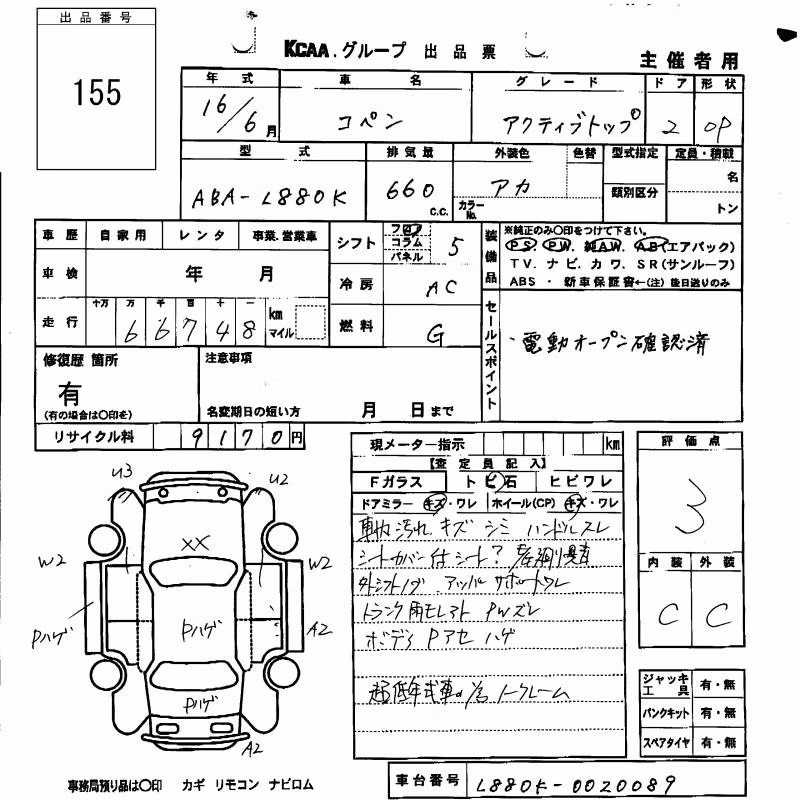 出品番号
155
KCAA.グループ 出品票
主催者用
年式 車名 グレード ドア 形状
16/6月 コペン アクティブトップ 2 OP
型式 排気量 外装色 色替 型式指定 定員・積載
ABA-L880K 660 c.c. アカ カラーNo. 類別区分 名 トン
車歴 自家用 レンタ 事業.営業車
車検 年 月
走行 十万 万 千 百 十 一
66748 km マイル
シフト フロア コラム パネル 5
冷房 AC
燃料 G
装備品
※純正のみ○印をつけて下さい。
PS. PW. 純AW. AB(エアバック)
TV. ナビ. カワ. SR(サンルーフ)
ABS ・ 新車保証書←(注)後日送りのみ
セールスポイント
・電動オープン確認済
修復歴 箇所
有
(有の場合は○印を)
注意事項
名変期日の短い方 月 日まで
リサイクル料 9170円
現メーター指示 km
【査定員記入】
Fガラス トビ石 ヒビワレ
ドアミラー キズ・ワレ ホイール(CP) キズ・ワレ
車内汚れ キズ シミ ハンドルスレ
シートカバー付 シート?
アッパーサポート
トランク
ボディ Pアセ ハゲ
超低年式車の為 ノークレーム
評価点
3
内装 外装
C C
ジャッキ工具 有・無
パンクキット 有・無
スペアタイヤ 有・無
U3 U2
XX
W2 W2
Pハゲ Pハゲ A2
Pハゲ
A2
事務局預り品は○印 カギ リモコン ナビロム
車台番号 L880K-0020089